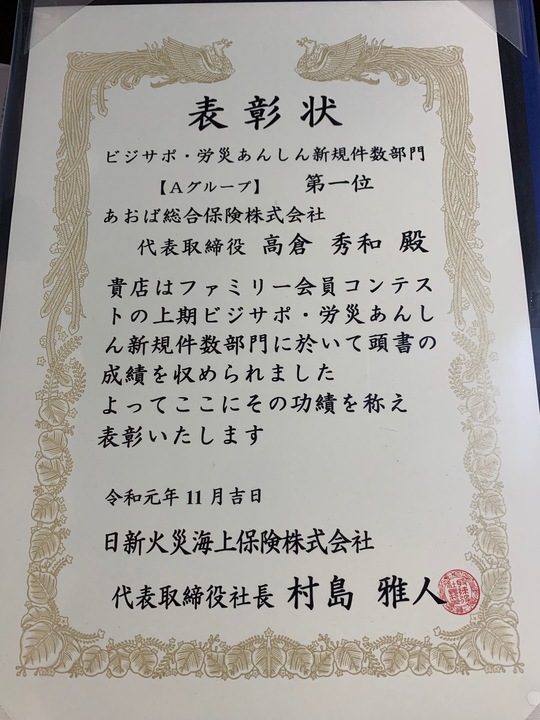 表彰状
ビジサポ・労災あんしん新規件数部門
【Aグループ】 第一位
あおば総合保険株式会社
代表取締役 高倉 秀和 殿
貴店はファミリー会員コンテス
トの上期ビジサポ・労災あんし
ん新規件数部門に於いて頭書の
成績を収められました
よってここにその功績を称え
表彰いたします
令和元年11月吉日
日新火災海上保険株式会社
代表取締役社長 村島 雅人